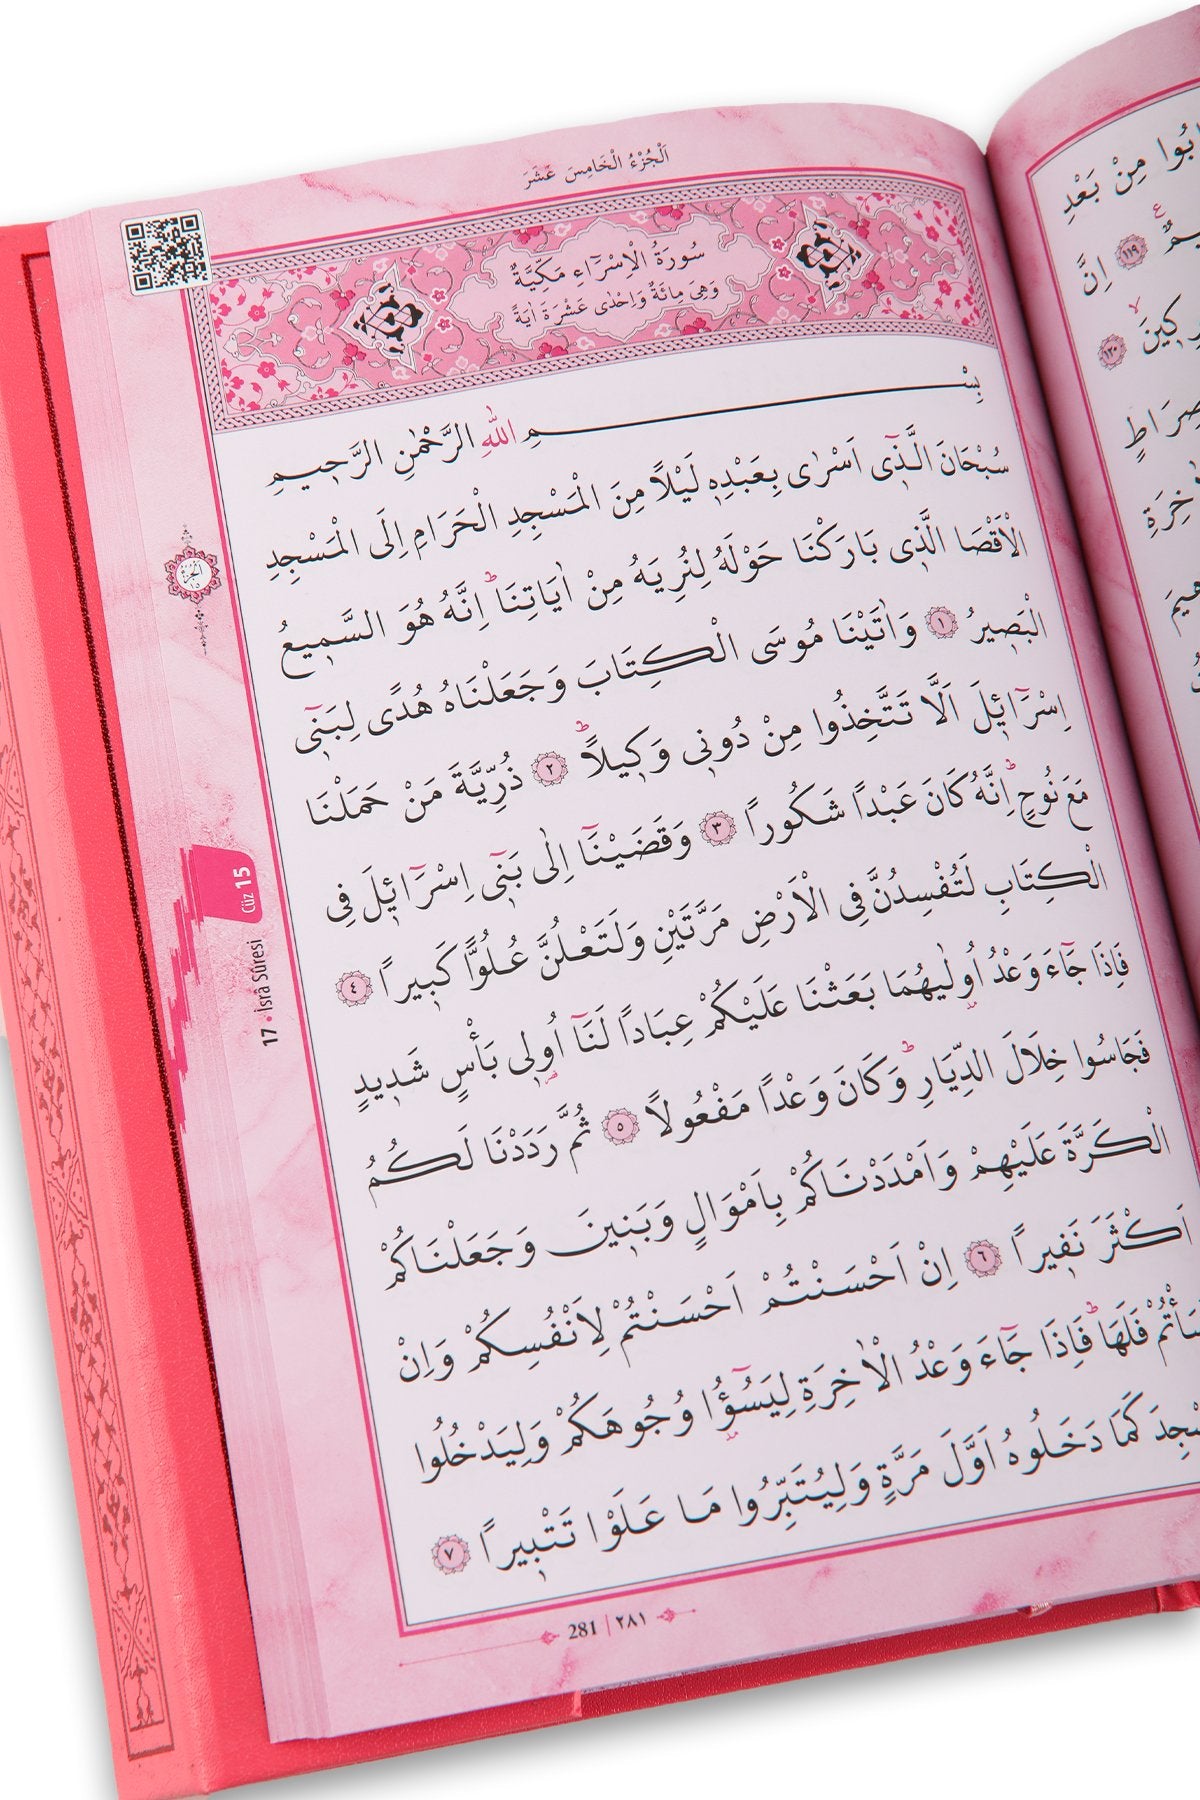 اَلْجُزْءُ الْخَامِسَ عَشَرَ
سُورَةُ الْاِسْرَٓاءِ مَكِّيَّةٌ
وَهِيَ مِائَةٌ وَاِحْدٰى عَشْرَةَ اٰيَةً
بِسْمِ اللّٰهِ الرَّحْمٰنِ الرَّحٖيمِ
سُبْحَانَ الَّذٖٓى اَسْرٰى بِعَبْدِهٖ لَيْلًا مِنَ الْمَسْجِدِ الْحَرَامِ اِلَى الْمَسْجِدِ
الْاَقْصَا الَّذٖى بَارَكْنَا حَوْلَهُ لِنُرِيَهُ مِنْ اٰيَاتِنَاؕ اِنَّهُ هُوَ السَّمٖيعُ
الْبَصٖيرُ ﴿١﴾ وَاٰتَيْنَا مُوسَى الْكِتَابَ وَجَعَلْنَاهُ هُدًى لِبَنٖٓى
اِسْرَٓائٖلَ اَلَّا تَتَّخِذُوا مِنْ دُونٖى وَكٖيلًاؕ ﴿٢﴾ ذُرِّيَّةَ مَنْ حَمَلْنَا
مَعَ نُوحٍؕ اِنَّهُ كَانَ عَبْدًا شَكُورًا ﴿٣﴾ وَقَضَيْنَٓا اِلٰى بَنٖٓى اِسْرَٓائٖلَ فِى
الْكِتَابِ لَتُفْسِدُنَّ فِى الْاَرْضِ مَرَّتَيْنِ وَلَتَعْلُنَّ عُلُوًّا كَبٖيرًا ﴿٤﴾
فَاِذَا جَٓاءَ وَعْدُ اُولٰيهُمَا بَعَثْنَا عَلَيْكُمْ عِبَادًا لَنَٓا اُولٖى بَأْسٍ شَدٖيدٍ
فَجَاسُوا خِلَالَ الدِّيَارِؕ وَكَانَ وَعْدًا مَفْعُولًا ﴿٥﴾ ثُمَّ رَدَدْنَا لَكُمُ
الْكَرَّةَ عَلَيْهِمْ وَاَمْدَدْنَاكُمْ بِاَمْوَالٍ وَبَنٖينَ وَجَعَلْنَاكُمْ
اَكْثَرَ نَفٖيرًا ﴿٦﴾ اِنْ اَحْسَنْتُمْ اَحْسَنْتُمْ لِاَنْفُسِكُمْ وَاِنْ
فَلَهَاؕ فَاِذَا جَٓاءَ وَعْدُ الْاٰخِرَةِ لِيَسُٓؤُا وُجُوهَكُمْ وَلِيَدْخُلُوا
كَمَا دَخَلُوهُ اَوَّلَ مَرَّةٍ وَلِيُتَبِّرُوا مَا عَلَوْا تَتْبٖيرًا ﴿٧﴾
281 | ٢٨١
الجزء
١٥
Cüz 15
17 • İsrâ Sûresi
مِنْ بَعْدِ
﴿١١٩﴾ اِنَّ
﴿١٢٠﴾